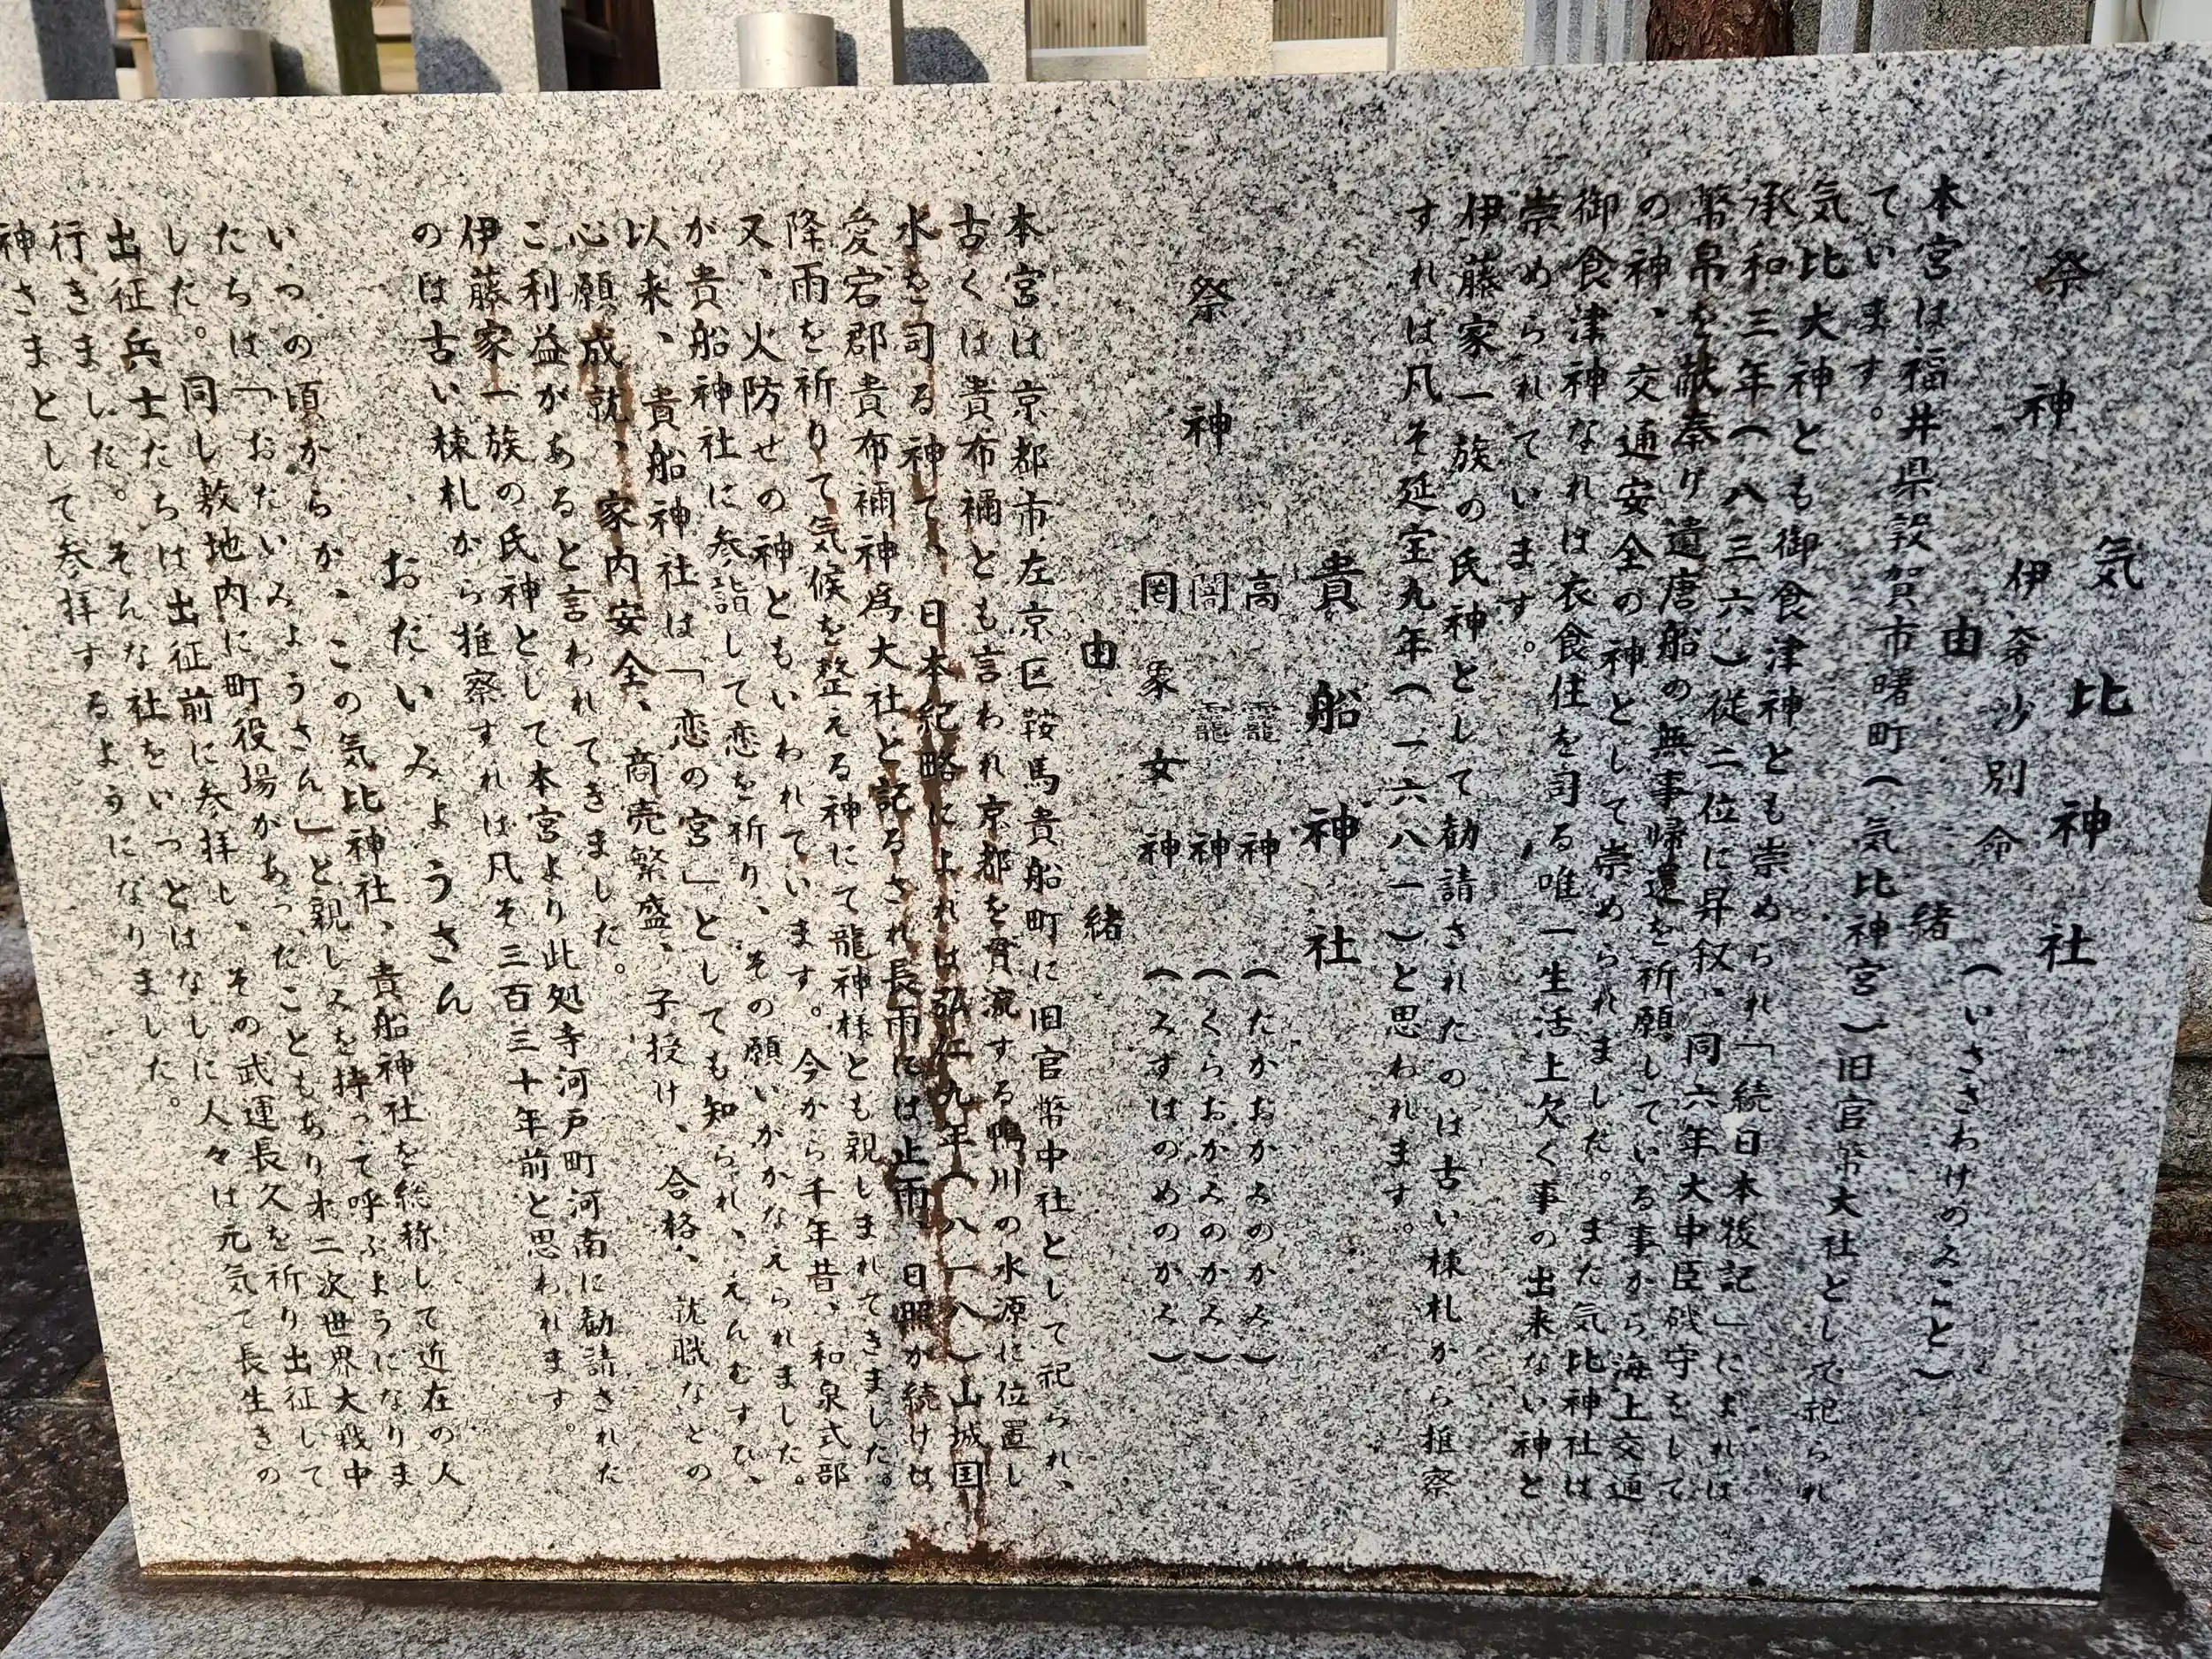 気比神社
祭神 伊奢沙別命 (いささわけのみこと)
由緒
本宮は福井県敦賀市曙町(気比神宮)旧官幣大社として祀られ
ています。
気比大神とも御食津神とも崇められ「続日本後記」によれば
承和三年(八三六)従二位に昇叙、同六年大中臣磯守をして
幣帛を献奉り遣唐船の無事帰還を祈願している事から海上交通
の神、交通安全の神として崇められました。また気比神社は
御食津神なれば衣食住を司る唯一生活上欠く事の出来ない神と
崇められています。
伊藤家一族の氏神として勧請されたのは古い棟札から推察
すれば凡そ延宝九年(一六八一)と思われます。
貴船神社
祭神 高龗神 (たかおかみのかみ)
闇龗神 (くらおかみのかみ)
罔象女神 (みずはのめのかみ)
由緒
本宮は京都市左京区鞍馬貴船町に旧官幣中社として祀られ、
古くは貴布禰とも言われ京都を貫流する鴨川の水源に位置し
水を司る神で、日本紀略によれば弘仁九年(八一八)山城国
愛宕郡貴布禰神為大社と記るされ長雨には止雨、日照が続けば
降雨を祈りて気候を整える神にて龍神様とも親しまれてきました。
又、火防せの神ともいわれています。今から千年昔、和泉式部
が貴船神社に参詣して恋を祈り、その願いがかなえられました。
以来、貴船神社は「恋の宮」としても知られ、えんむすび、
心願成就、家内安全、商売繁盛、子授け、合格、就職などの
ご利益があると言われてきました。
伊藤家一族の氏神として本宮より此処寺河戸町河南に勧請された
のは古い棟札から推察すれば凡そ三百三十年前と思われます。
おだいみょうさん
いつの頃からか、この気比神社、貴船神社を総称して近在の人
たちは「おだいみょうさん」と親しみを持って呼ぶようになりま
した。同じ敷地内に町役場があったこともあり才二次世界大戦中
出征兵士たちは出征前に参拝し、その武運長久を祈り出征して
行きました。そんな社をいつとはなしに人々は元気で長生きの
神さまとして参拝するようになりました。